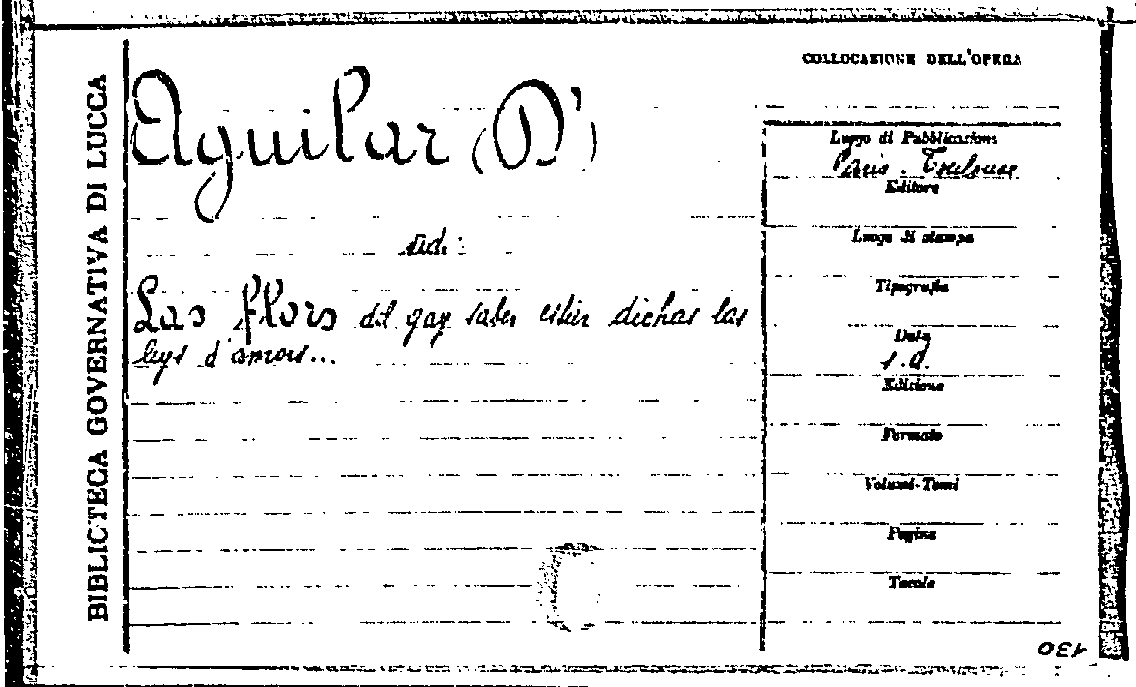 BIBLIOTECA GOVERNATIVA DI LUCCA
Aguilar (D')
ved:
Las flors del gay saber estier dichas las
leys d'amors...
COLLOCAZIONE DELL'OPERA
Luogo di Pubblicazione
Paris. Toulouse
Editore
Luogo di stampa
Tipografia
Data
s.d.
Edizione
Formato
Volumi-Tomi
Pagine
Tavole
130